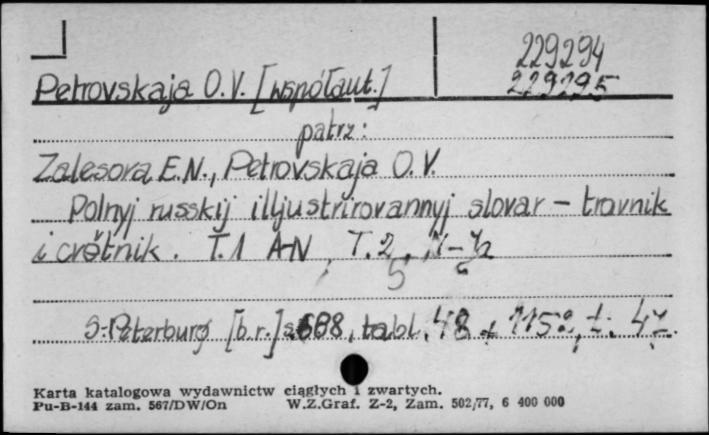 229294
Petrovskaja O.V. [współaut.] 229295
patrz:
Zalesova E.N., Petrovskaja O.V.
Polnyj russkij illjustrirovannyj slovar - travnik
i cvětnik. T.1 A-N, T.2,
S-Peterburg [b.r.] s. 688, tabl. 48
Karta katalogowa wydawnictw ciągłych i zwartych.
Pu-B-144 zam. 567/DW/On W.Z.Graf. Z-2, Zam. 502/77, 6 400 000